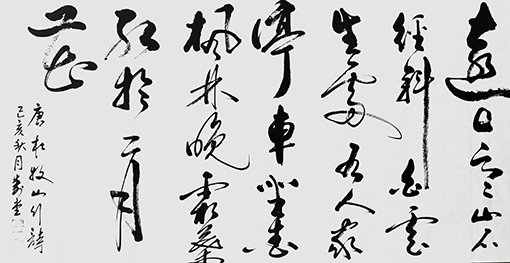 遠上寒山石
經斜白雲
生處有人家
停車坐愛
楓林晚霜葉
紅於二月
花
唐杜牧山行詩
己亥秋月